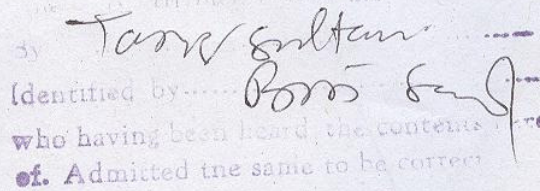 by Tariq Sultan
Identified by
who having been heard the contents
of. Admitted tne same to be correct